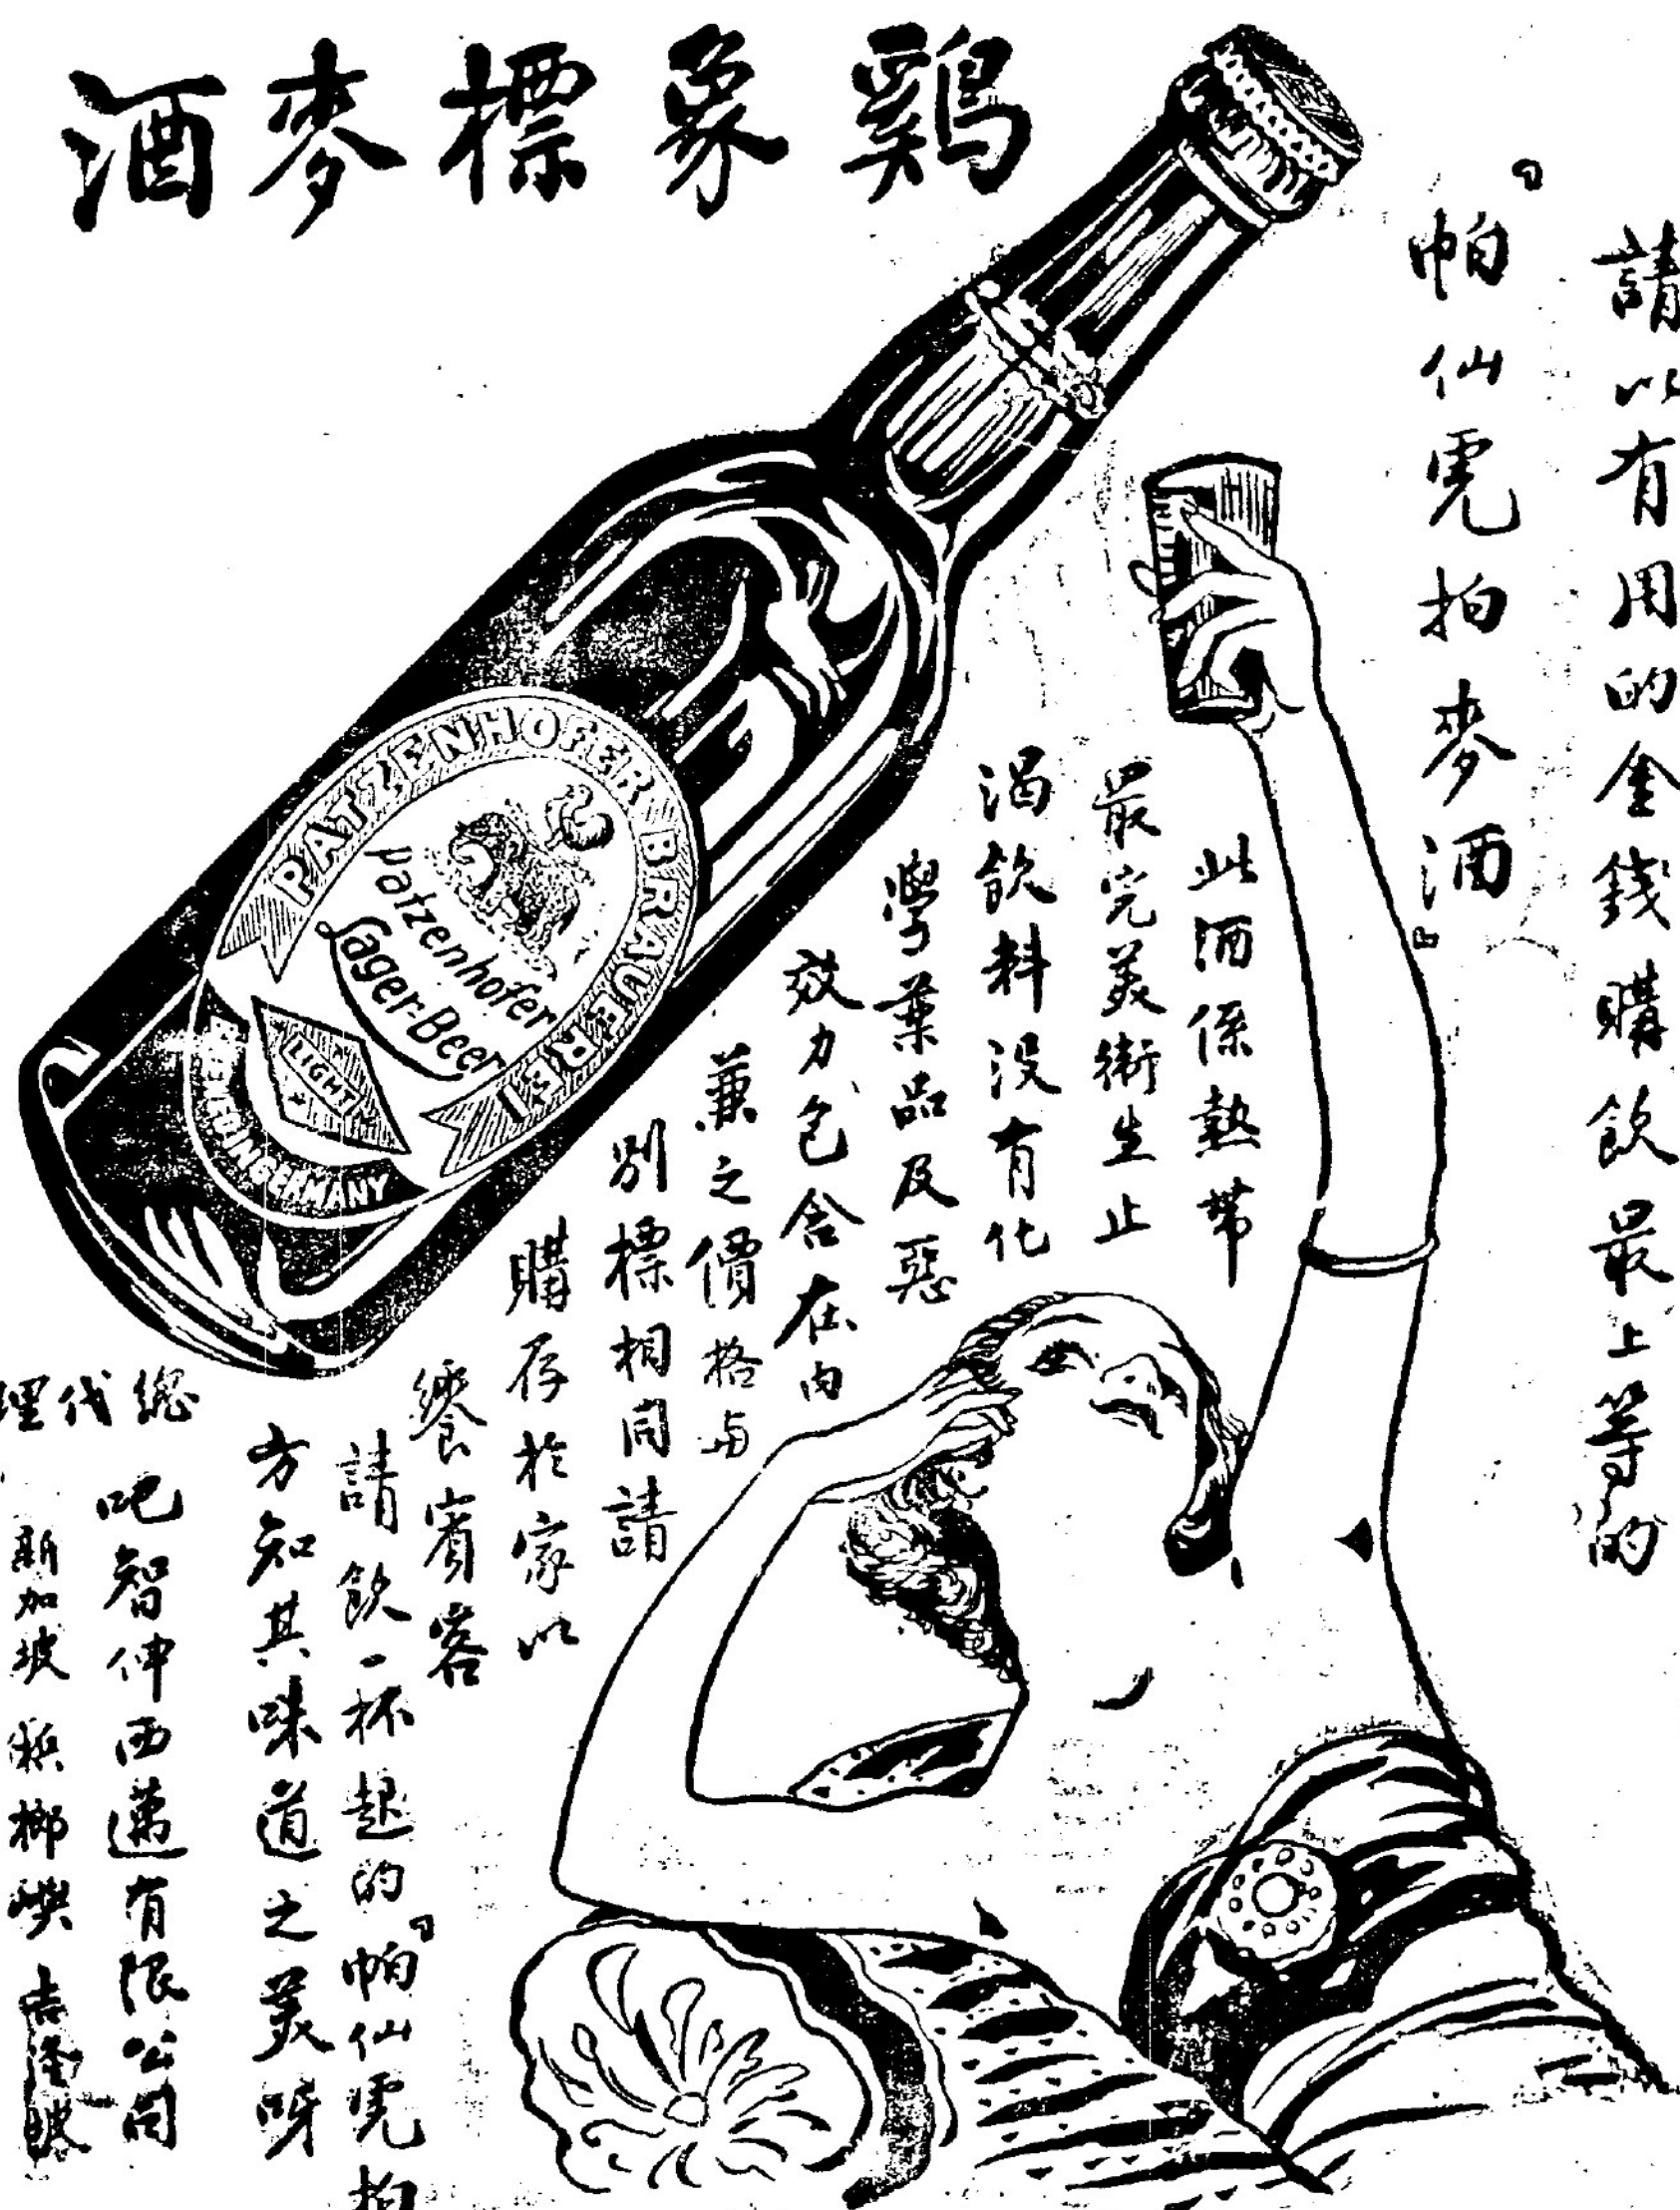 鷄象標麥酒
請以有用的金錢購飲最上等的
『帕仙霓拍麥酒』
此酒係熱帶
最完美衛生止
渴飲料没有化
學藥品及惡
效力包含在内
兼之價格与
別標相同請
購存於家以
饗賓客
請飲一杯起的『帕仙霓拍
方知其味道之美呀
總代理
吧智伸西邁有限公司
斯加坡 檳榔嶼 吉隆坡
PATZENHOFER BRAUEREI
Patzenhofer
Lager-Beer
LIGHT
GERMANY